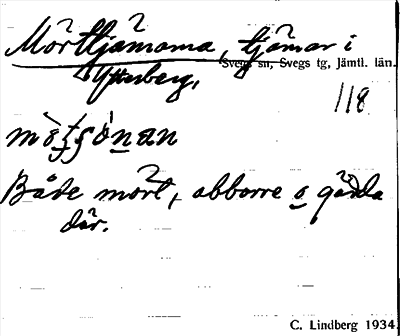 Mörttjärnarna, tjärnar i
Ytterberg,
Svegs sn, Svegs tg, Jämtl. län.
118
Både mört, abborre o gädda
där.
C. Lindberg 1934